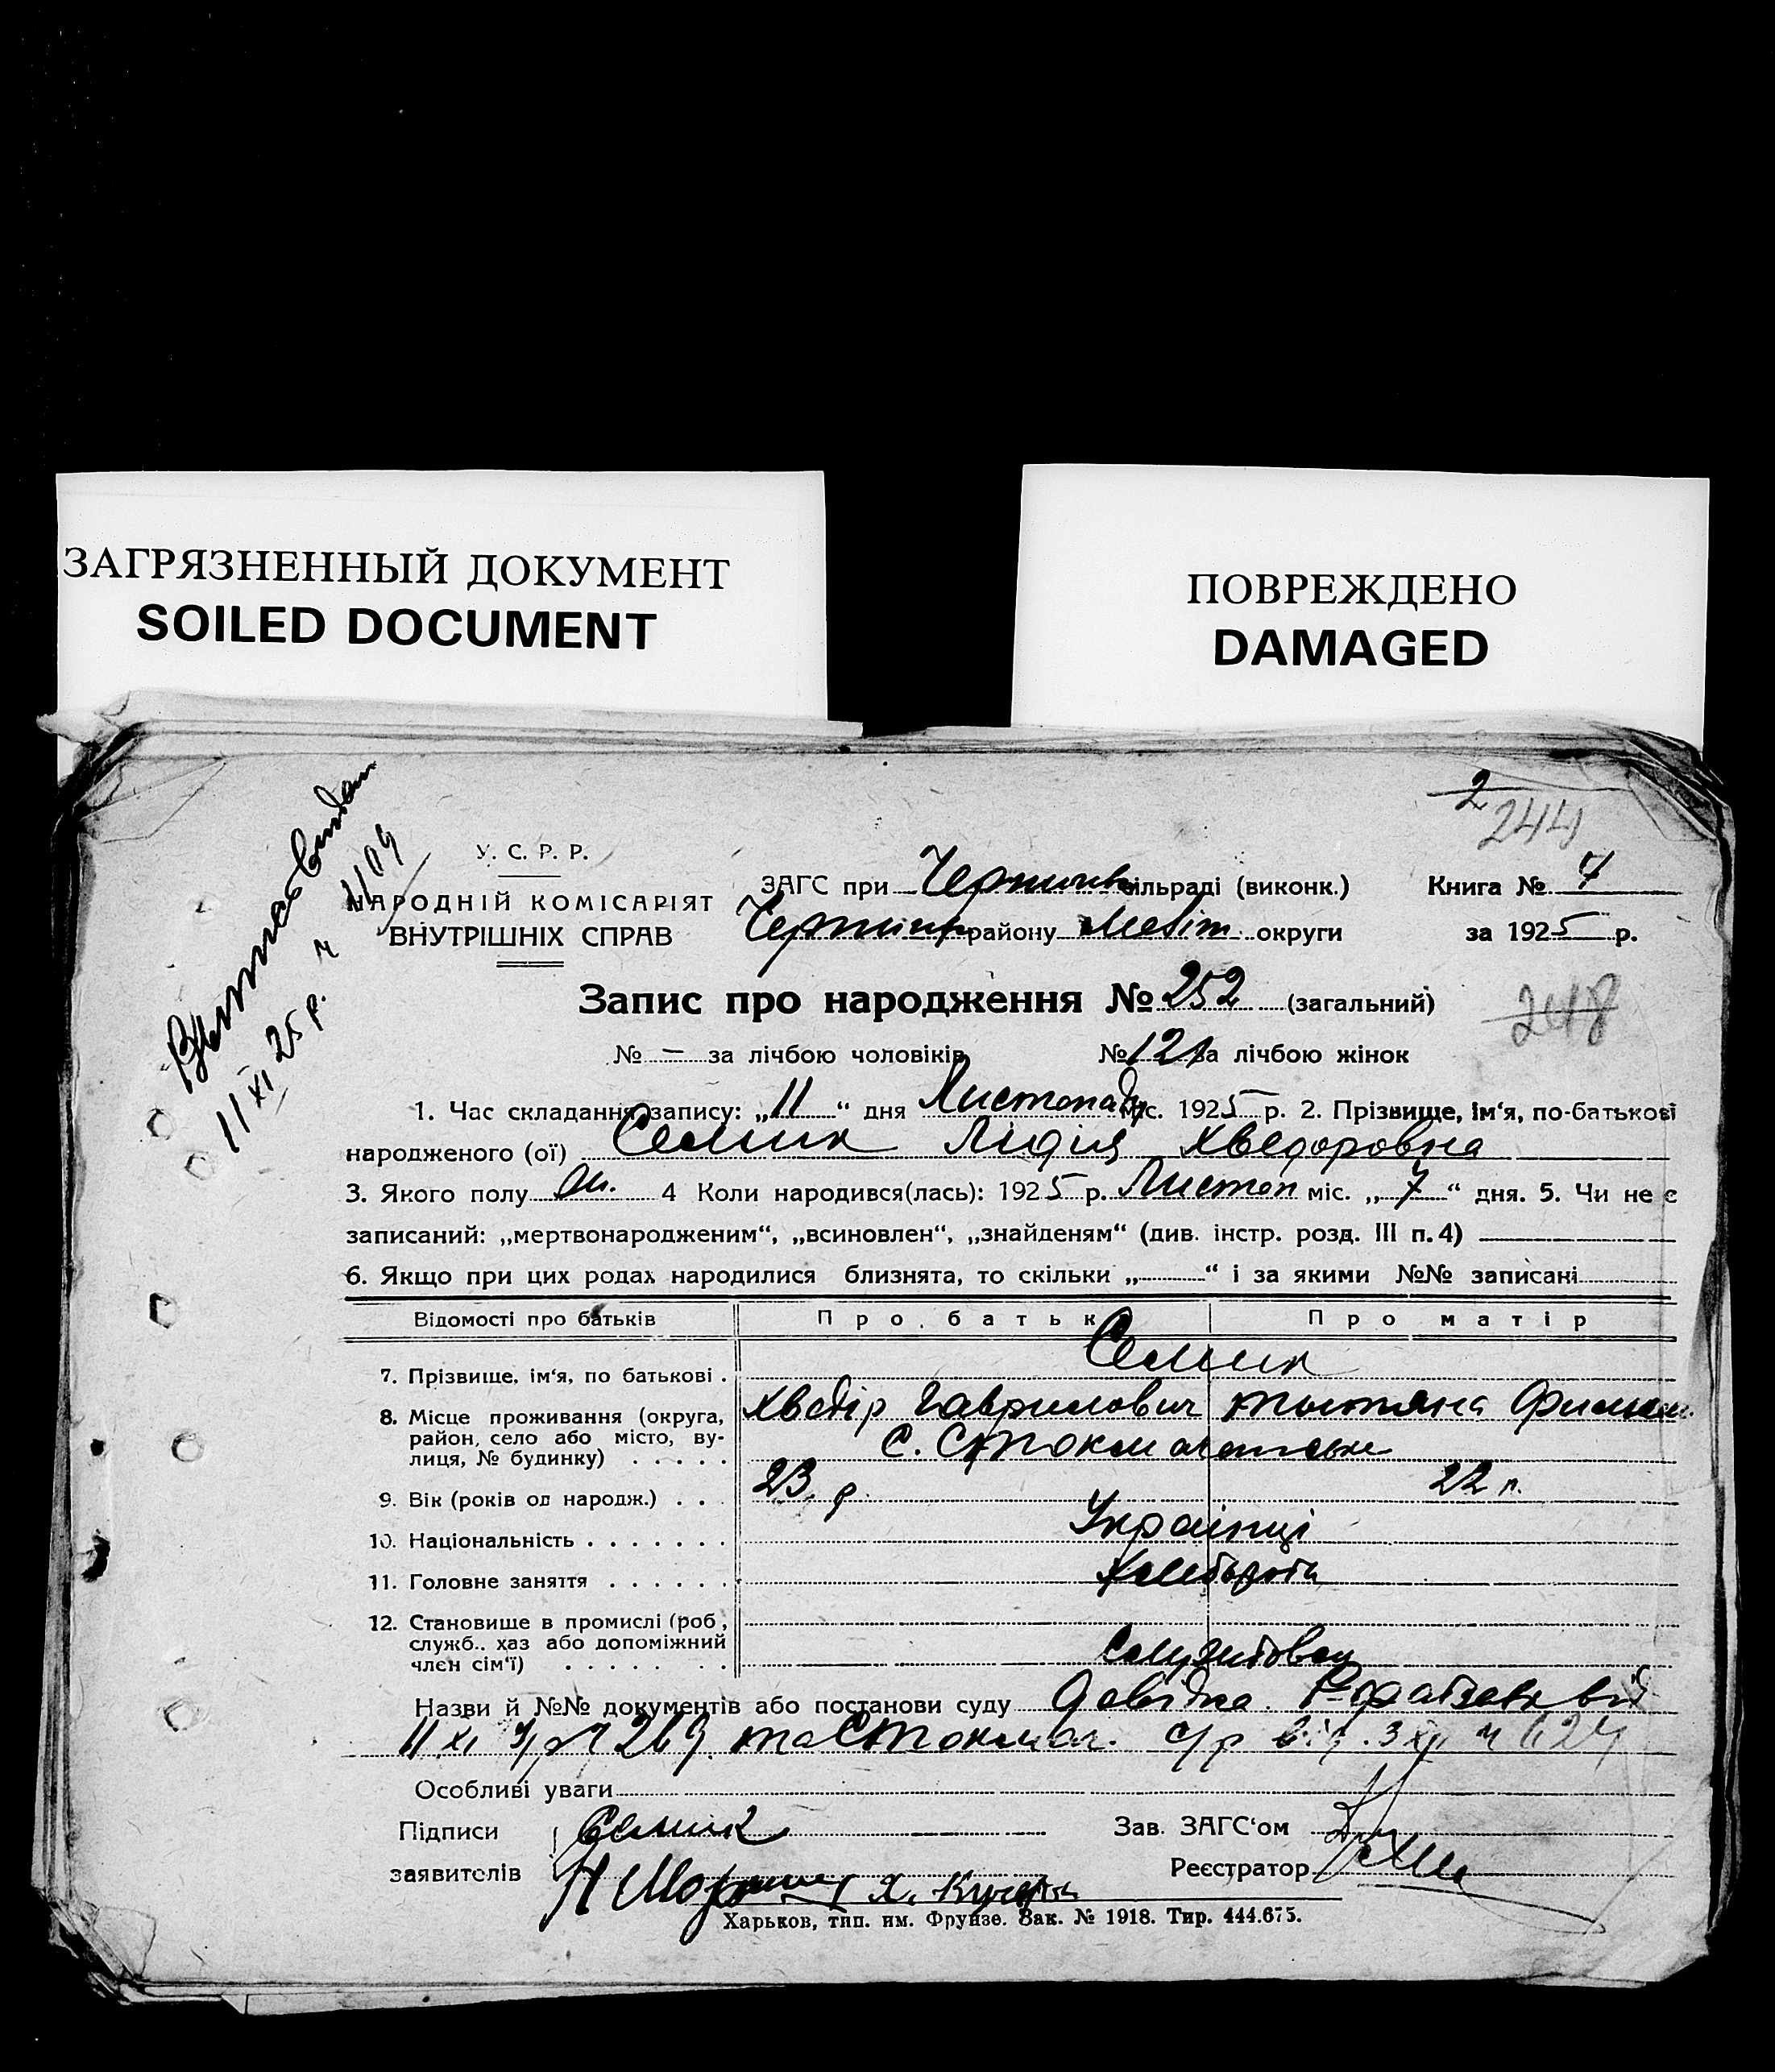 ЗАГРЯЗНЕННЫЙ ДОКУМЕНТ
SOILED DOCUMENT
ПОВРЕЖДЕНО
DAMAGED
2
244
11 XI 25 р.
У. С. Р. Р.
НАРОДНІЙ КОМІСАРІЯТ
ВНУТРІШНІХ СПРАВ
ЗАГС при сільраді (виконк.)
району Меліт. округи
Книга № 7
за 1925 р.
Запис про народження № 252 (загальний)
248
№ – за лічбою чоловіків № 121 за лічбою жінок
1. Час складання запису: „11“ дня Листопаду міс. 1925 р. 2. Прізвище, ім'я, по-батькові
народженого (ої) Семик Лідія Хведоровна
3. Якого полу ж. 4 Коли народився(лась): 1925 р. Листоп міс. „7“ дня. 5. Чи не є
записаний: „мертвонародженим“, „всиновлен“, „знайденям“ (див. інстр. розд. III п. 4)
6. Якщо при цих родах народилися близнята, то скільки „ “ і за якими №№ записані
Відомості про батьків Про батька Про матір
7. Прізвище, ім'я, по батькові . Семик
Хведір Гаврилович Тытяна
8. Місце проживання (округа,
район, село або місто, ву-
лиця, № будинку) . . . . . С.
9. Вік (років од народж.) . . . 23 р. 22 р.
10. Національність . . . . . . . Українці
11. Головне заняття . . . . . . Хлебороби
12. Становище в промислі (роб.,
служб., хаз або допоміжний
член сім'ї) . . . . . . . .
Назви й №№ документів або постанови суду Довідка
11 XI ч 269 та с/р від. ч 624
Особливі уваги
Підписи Семик
заявителів
Зав. ЗАГС'ом
Реєстратор
Харьков, тип. им. Фрунзе. Зак. № 1918. Тир. 444.675.